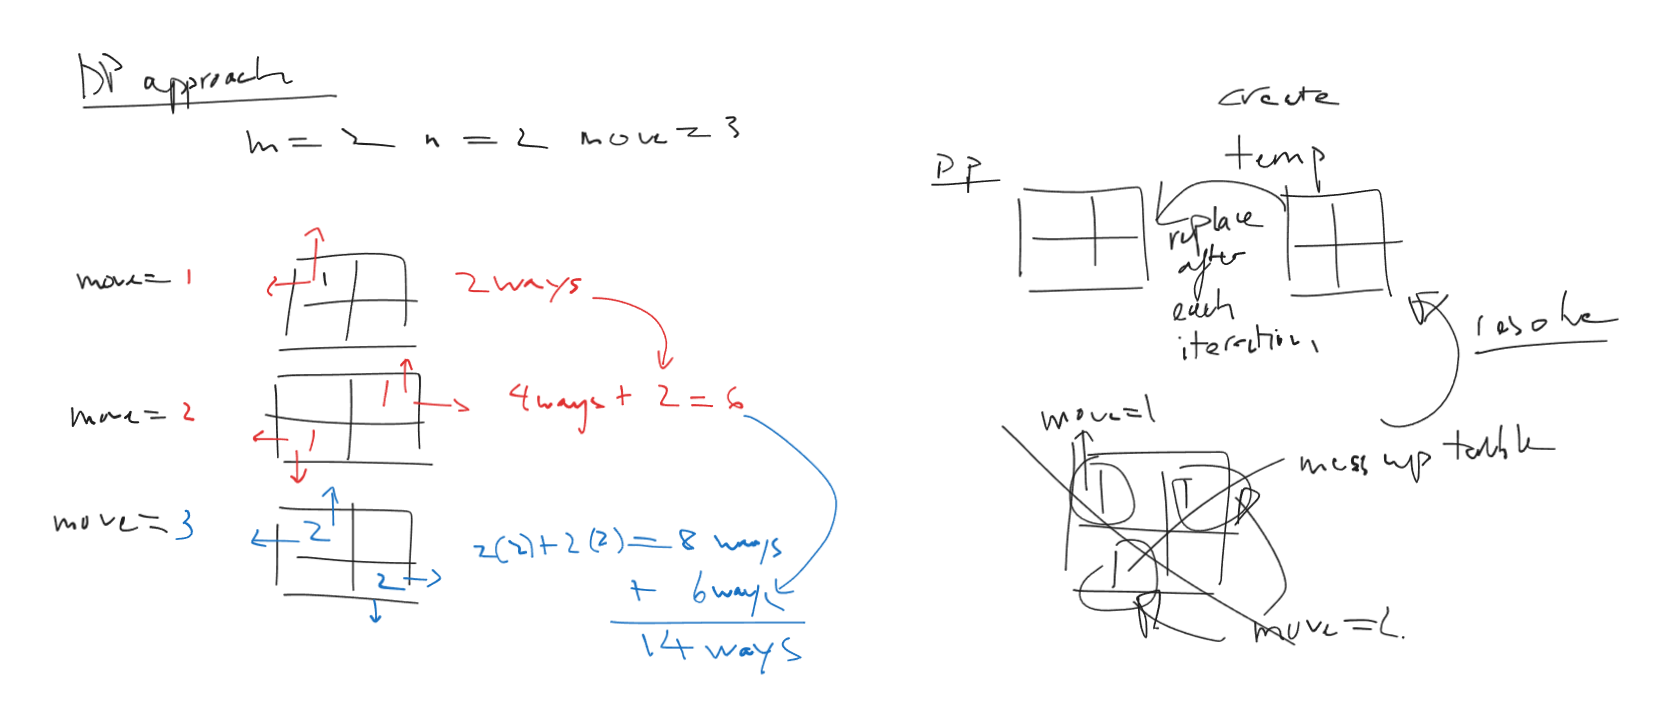 DP approach
m = 2 n = 2 move = 3
move = 1
1
2 ways
move = 2
1
1
4 ways + 2 = 6
move = 3
2
2
2(2) + 2(2) = 8 ways
+ 6 ways
14 ways
create
temp
DP
replace
after
each
iteration,
resolve
move = 1
1
1
1
mess up table
move = 2.